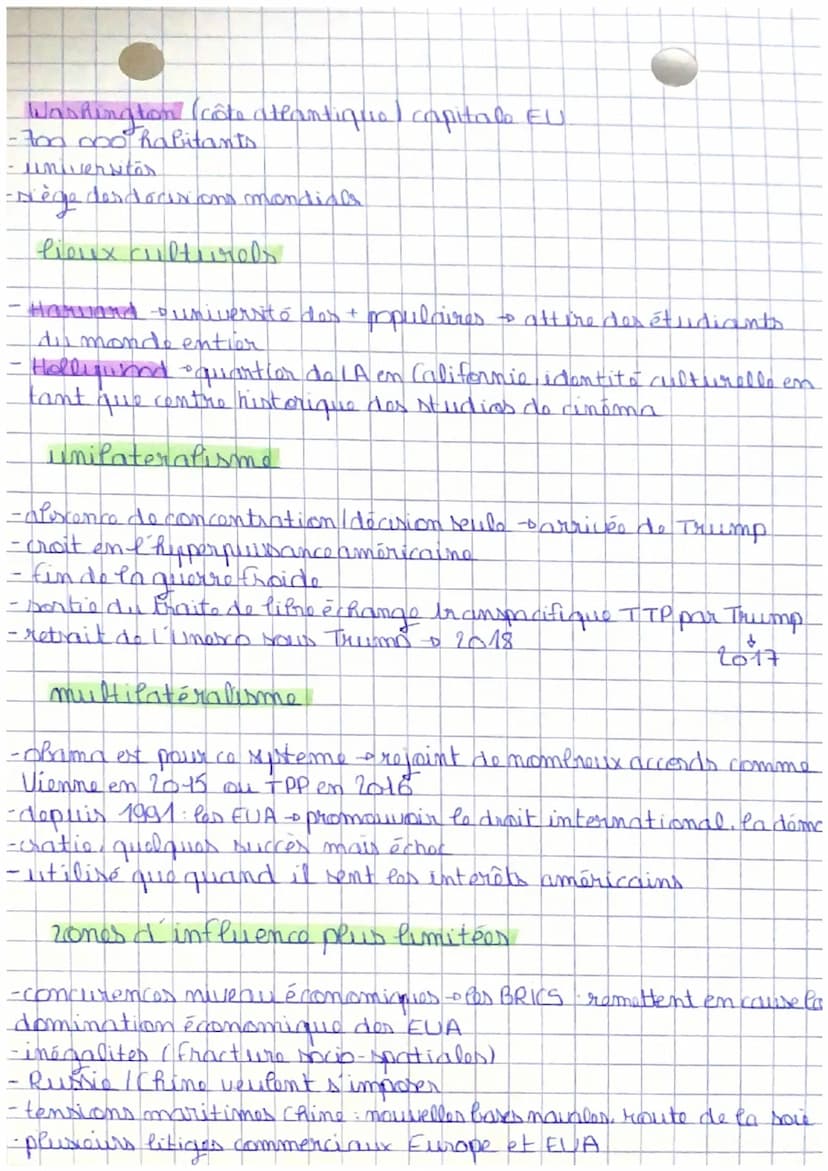 Washington (côte atlantique) capitale EU
-700 000 habitants
- universités
-siège des décisions mondiales
lieux culturels
- Harvard → université des + populaires → attire des étudiants
du monde entier
- Hollywood → quartier de LA en Californie, identité culturelle en
tant que centre historique des studios de cinéma
unilateralisme
- absence de concentration / décision seule → arrivée de Trump
- croit en l'hyperpuissance américaine
- fin de la guerre froide
- sortie du traite de libre échange transpacifique TTP par Trump
- retrait de l'Unesco sous Trump → 2018
↓
2017
multilatéralisme
- Obama est pour ce systeme → rejoint de nombreux accords comme
Vienne en 2015 ou TPP en 2016
- depuis 1991 : les EUA → promouvoir le droit international, la démo
-cratie, quelques succès mais échec
- utilisé que quand il sent les interêts américains
zones d'influence plus limitées
-concurences niveau économiques → les BRICS remettent en cause la
domination économique des EUA
- inégalites (fracture socio-spatiales)
- Russie / Chine veulent s'imposer
- tensions maritimes Chine : nouvelles bases navales, route de la soie
- plusieurs litiges commerciaux Europe et EUA